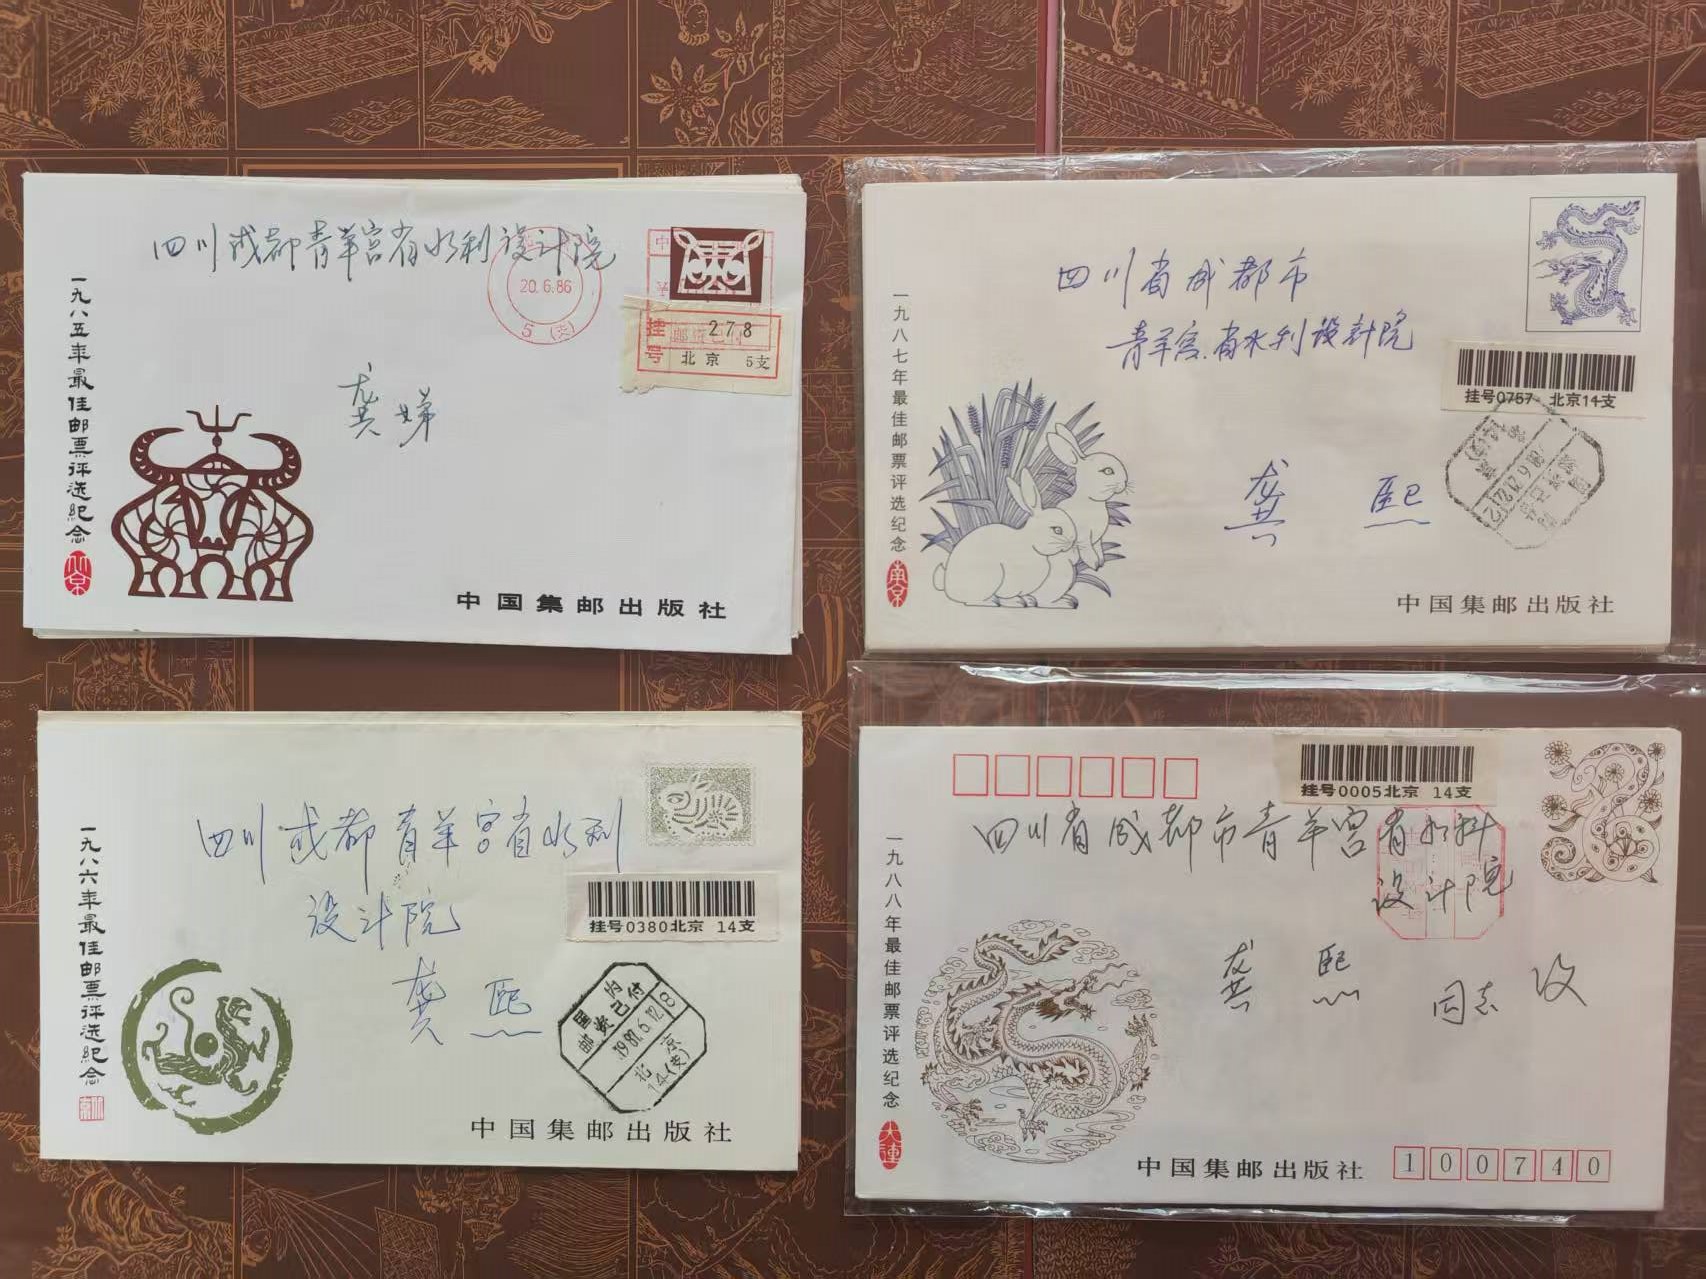 四川成都青羊宫省水利设计院
20.6.86
5(支)
挂号
278
邮资已付
北京 5支
龚娣
一九八五年最佳邮票评选纪念
北京
中国集邮出版社
四川省成都市
青羊宫.省水利设計院
挂号0757 北京14支
龚 熙
一九八七年最佳邮票评选纪念
南京
中国集邮出版社
四川成都青羊宫省水利
设计院
挂号0380北京 14支
龚 熙
国内
邮资已付
1987.6.12.18
北京
14(支)
一九八六年最佳邮票评选纪念
中国集邮出版社
挂号0005北京 14支
四川省成都市青羊宫省水科
设计院
龚 熙 同志 收
一九八八年最佳邮票评选纪念
大連
中国集邮出版社
100740